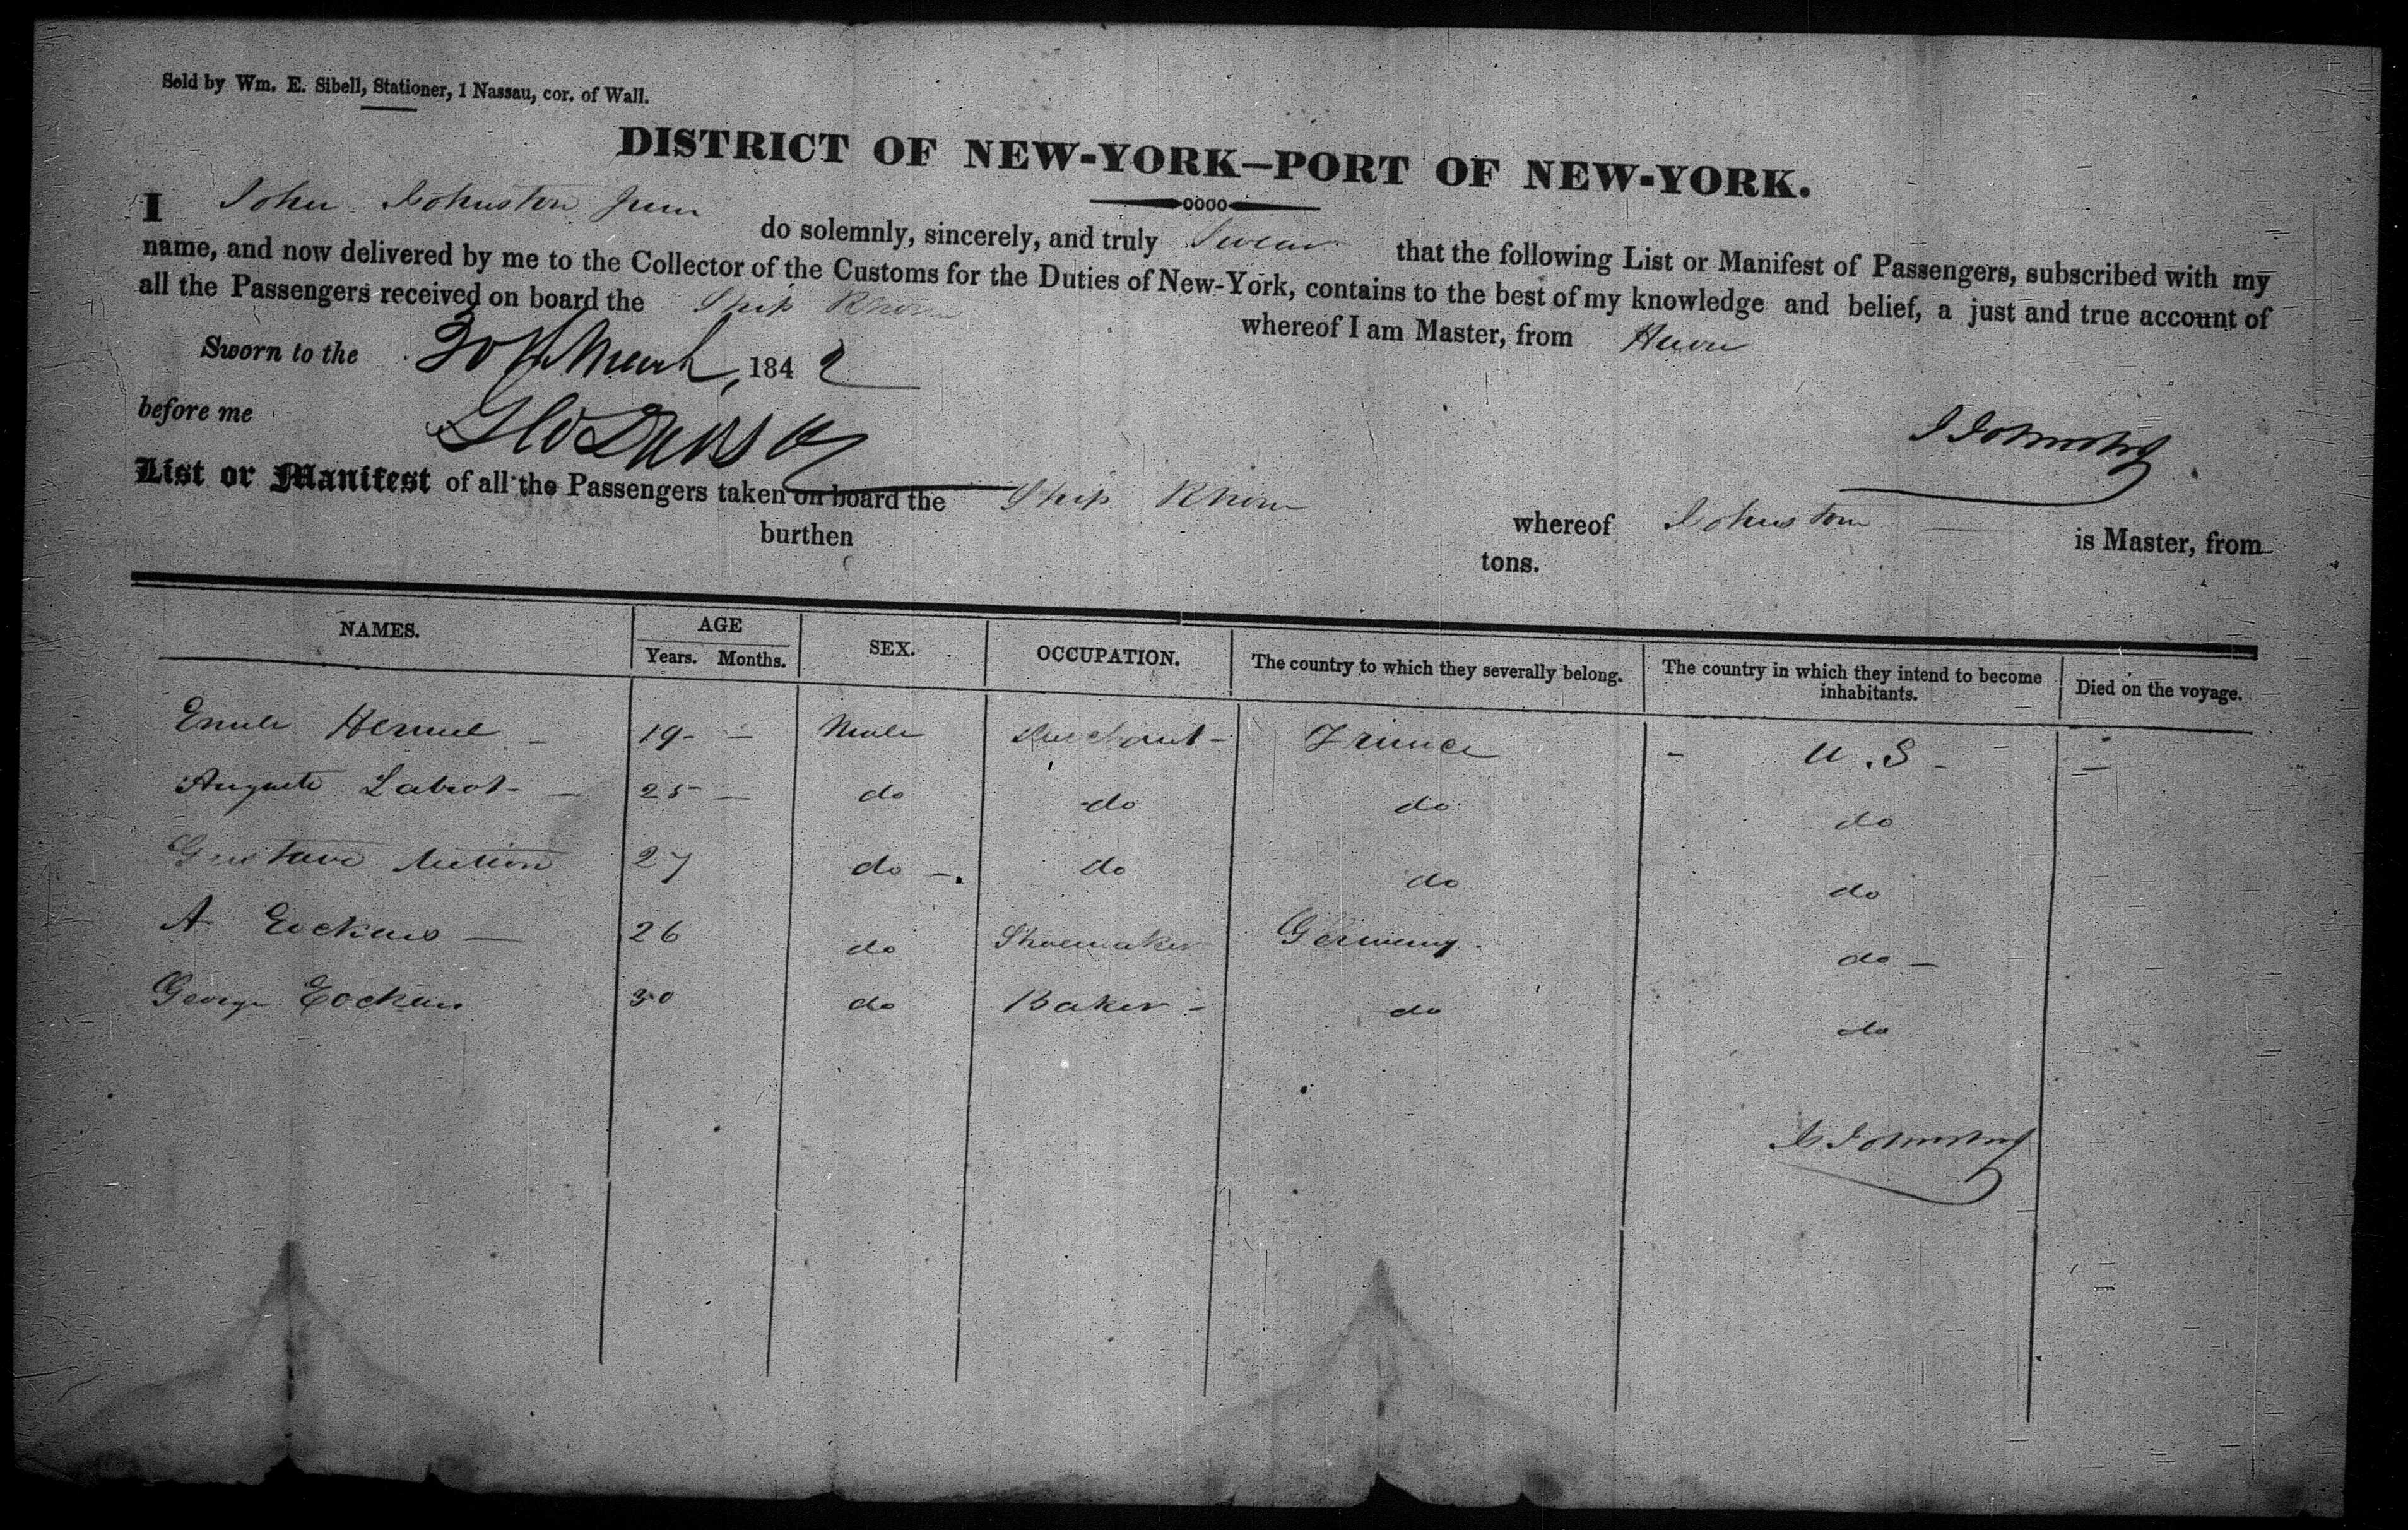 Sold by Wm. E. Sibell, Stationer, 1 Nassau, cor. of Wall.
DISTRICT OF NEW-YORK—PORT OF NEW-YORK.
I John Johnston Junr do solemnly, sincerely, and truly Swear that the following List or Manifest of Passengers, subscribed with my
name, and now delivered by me to the Collector of the Customs for the Duties of New-York, contains to the best of my knowledge and belief, a just and true account of
all the Passengers received on board the Ship Rhone whereof I am Master, from Havre
Sworn to the 30th March, 1842
before me
J Johnston
List or Manifest of all the Passengers taken on board the Ship Rhone whereof Johnston is Master, from
burthen tons.
NAMES. AGE Years. Months. SEX. OCCUPATION. The country to which they severally belong. The country in which they intend to become inhabitants. Died on the voyage.
Emile 19 - Male Merchant - France - U.S - -
Auguste Labrot - 25 - do do do do
Gustave 27 do - do do do
A 26 do Shoemaker Germany do -
George 30 do Baker - do do
J Johnston